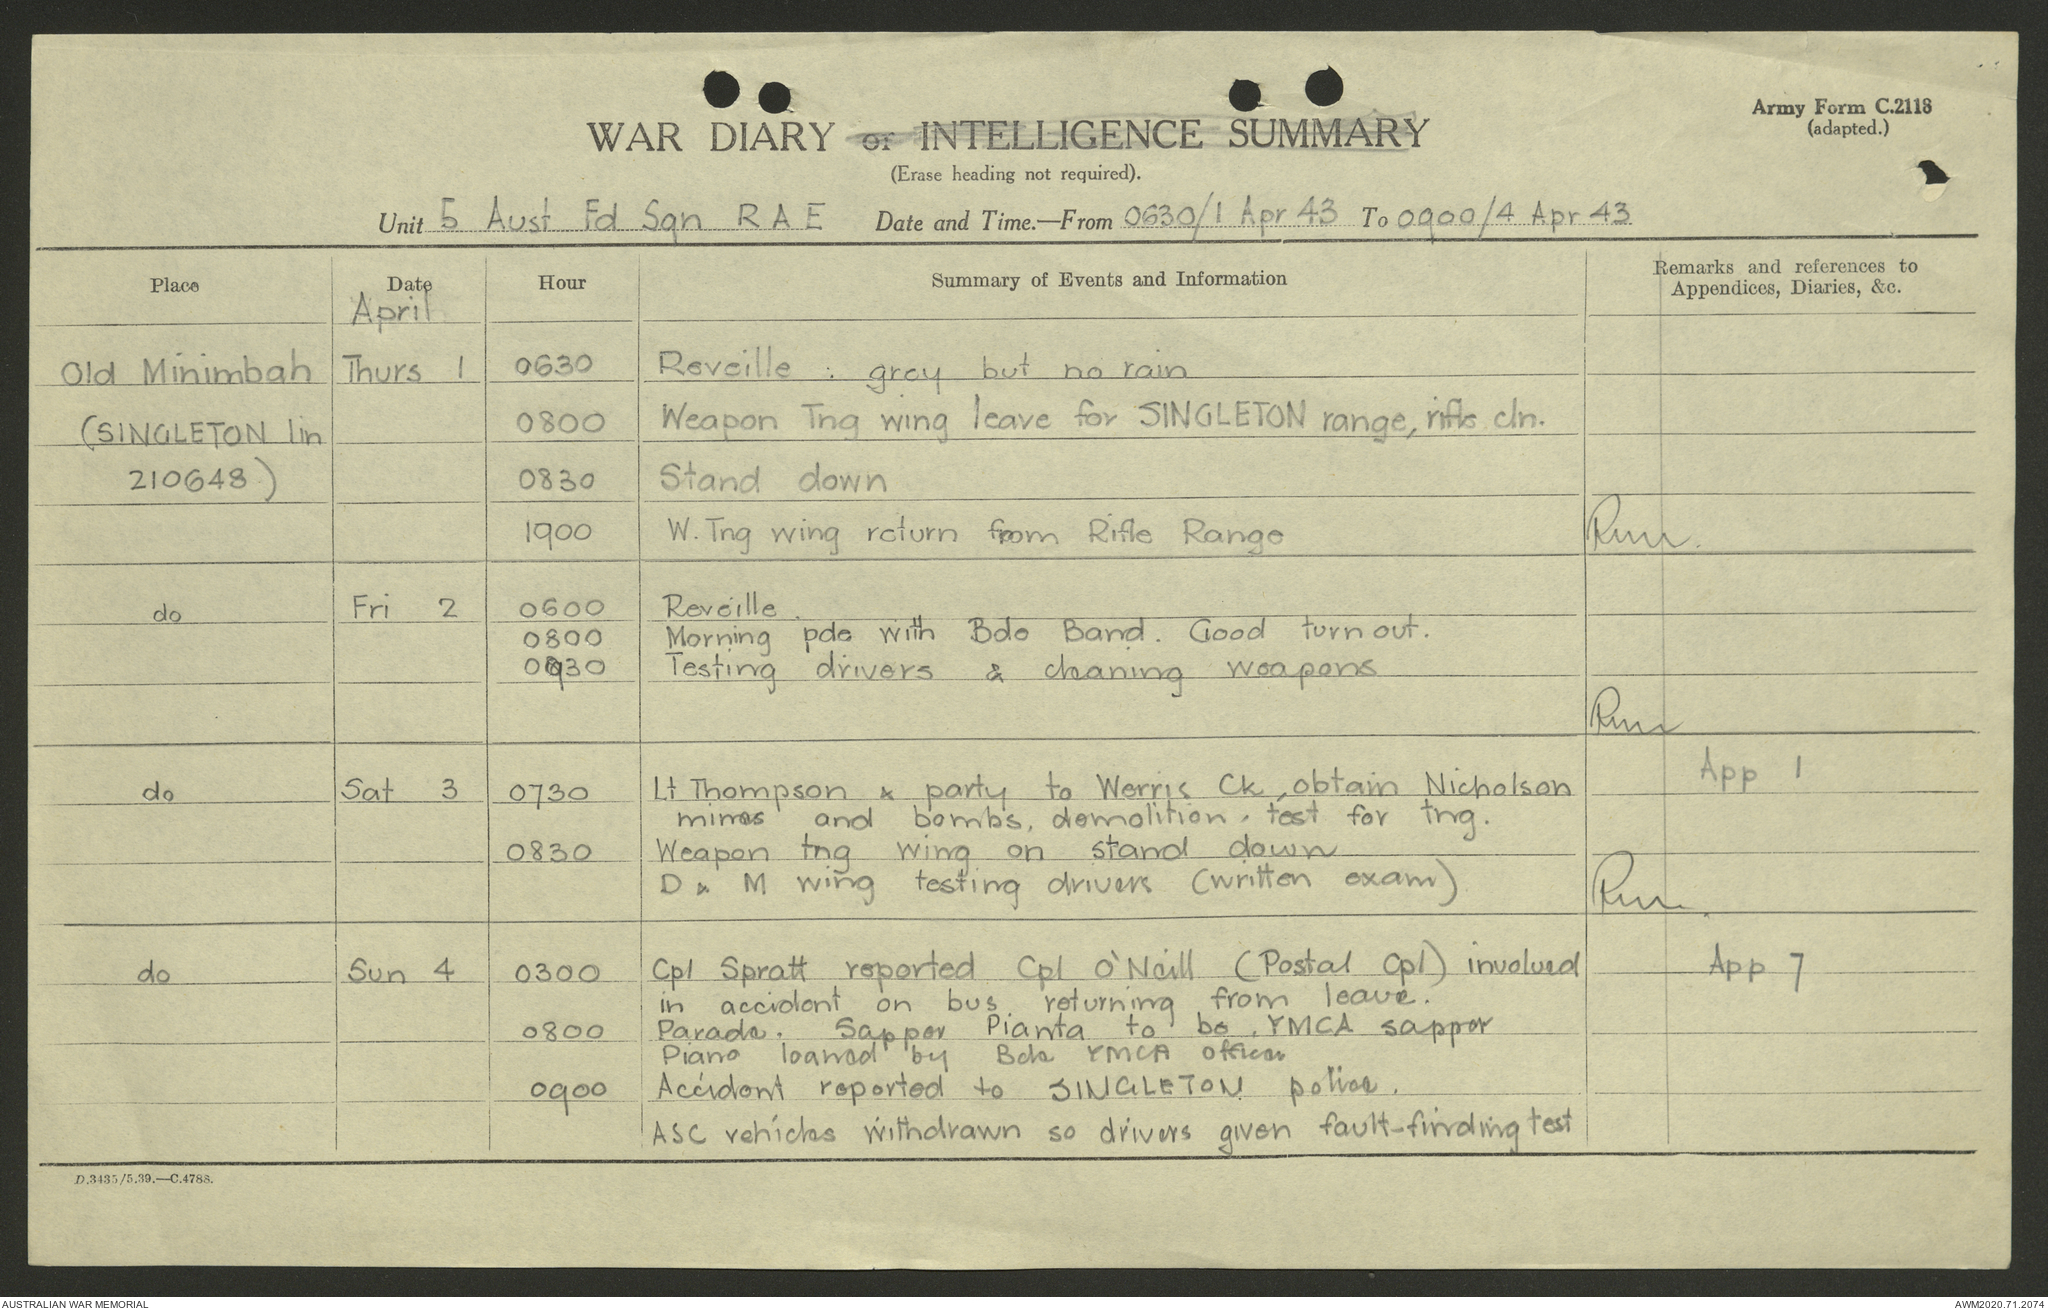 Army Form C.2118
(adapted.)
WAR DIARY or INTELLIGENCE SUMMARY
(Erase heading not required).
Unit 5 Aust Fd Sqn R A E Date and Time.—From 0630/1 Apr 43 To 0900/4 Apr 43
Place Date Hour Summary of Events and Information Remarks and references to
Appendices, Diaries, &c.
April
Old Minimbah Thurs 1 0630 Reveille : grey but no rain
(SINGLETON 1in 0800 Weapon Tng wing leave for SINGLETON range, rifle cln.
210648) 0830 Stand down
1900 W. Tng wing return from Rifle Range
do Fri 2 0600 Reveille.
0800 Morning pde with Bde Band. Good turn out.
0930 Testing drivers & cleaning weapons
do Sat 3 0730 Lt Thompson & party to Werris Ck, obtain Nicholson App 1
mines and bombs, demolition, test for tng.
0830 Weapon tng wing on stand down
D & M wing testing drivers (written exam)
do Sun 4 0300 Cpl Spratt reported Cpl O'Neill (Postal Cpl) involved App 7
in accident on bus returning from leave.
0800 Parade. Sapper Pianta to be YMCA sapper
Piano loaned by Bde YMCA officer
0900 Accident reported to SINGLETON police.
ASC vehicles withdrawn so drivers given fault-finding test
D.3435/5.39.—C.4788.
AUSTRALIAN WAR MEMORIAL AWM2020.71.2074